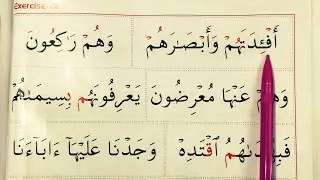 Exercise
أَفْـِٔدَتَهُمْ وَأَبْصَـٰرَهُمْ وَهُمْ رَٰكِعُونَ
وَهُمْ عَنْهَا مُعْرِضُونَ يَعْرِفُونَهُم بِسِيمَـٰهُمْ
فَبِهُدَىٰهُمُ ٱقْتَدِهْ وَجَدْنَا عَلَيْهَآ ءَابَآءَنَا